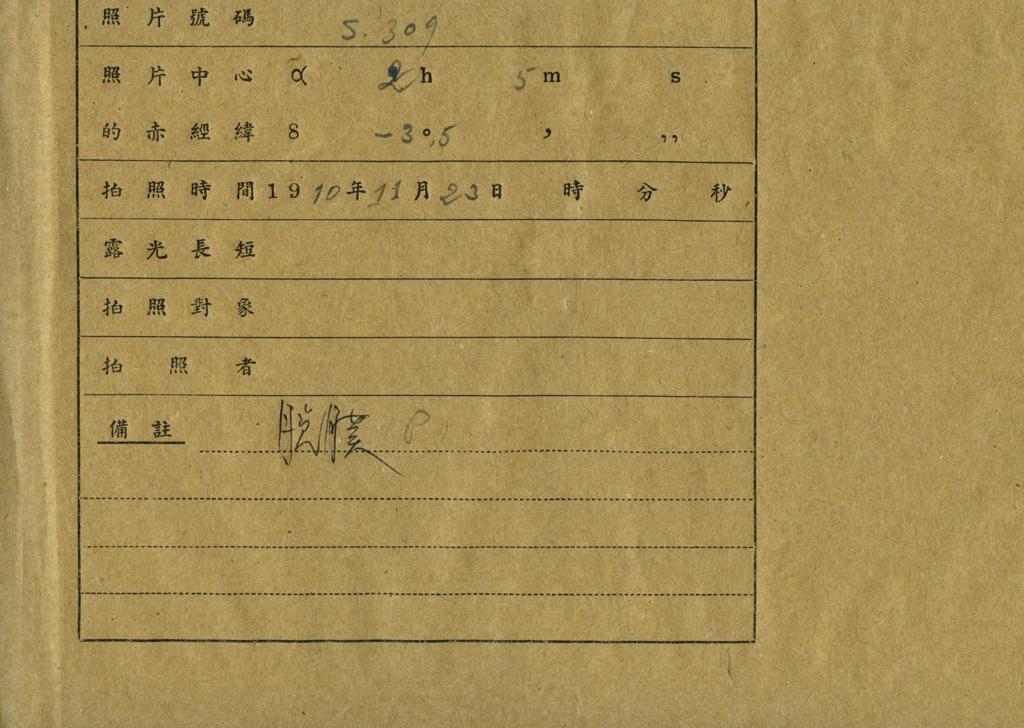 照片號碼 S. 309
照片中心 α 2h 5m s
的赤經緯 δ -3°.5 ’ ’’
拍照時間1910年11月23日 時 分 秒
露光長短
拍照對象
拍照者
備註 脱膜 P